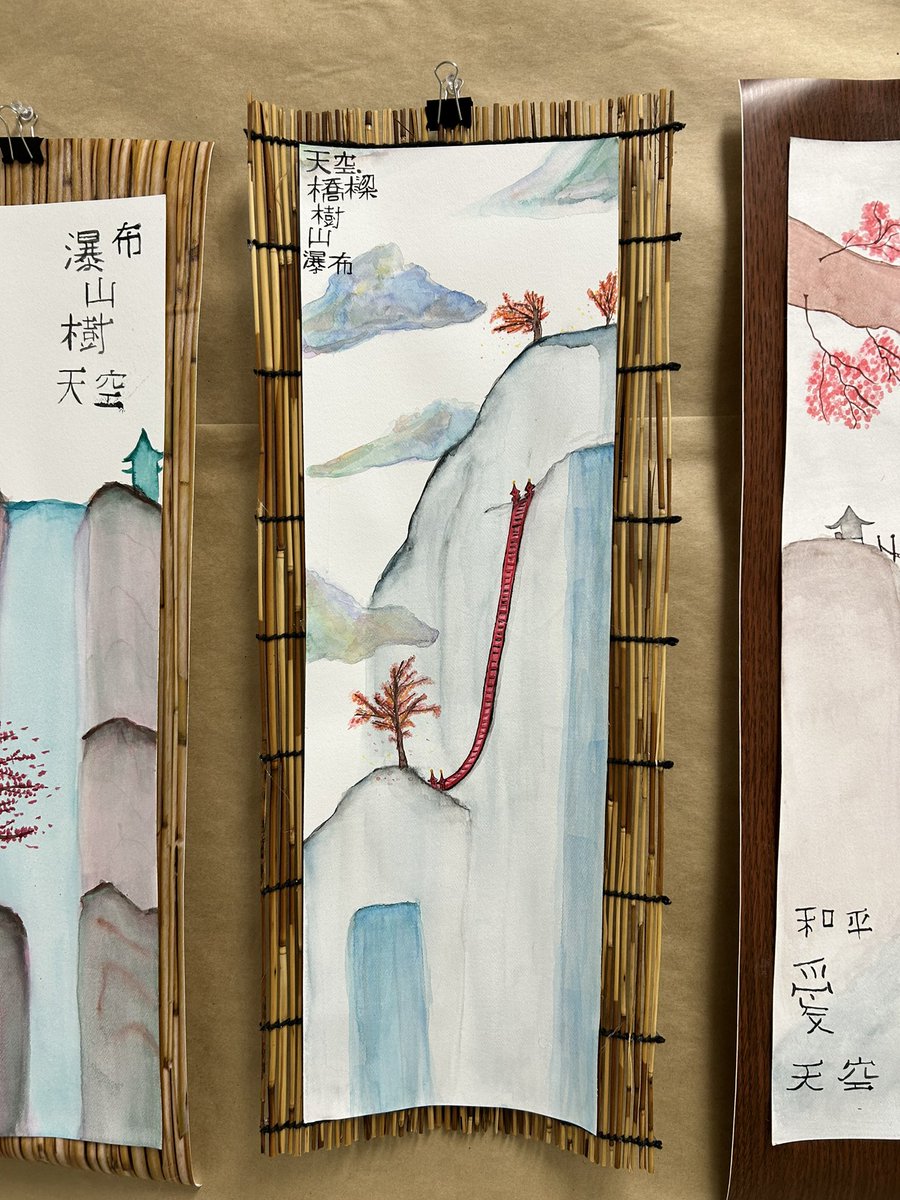 瀑布
山
樹
天空
天空.
橋樑
樹
山
瀑布
和平
愛
天空